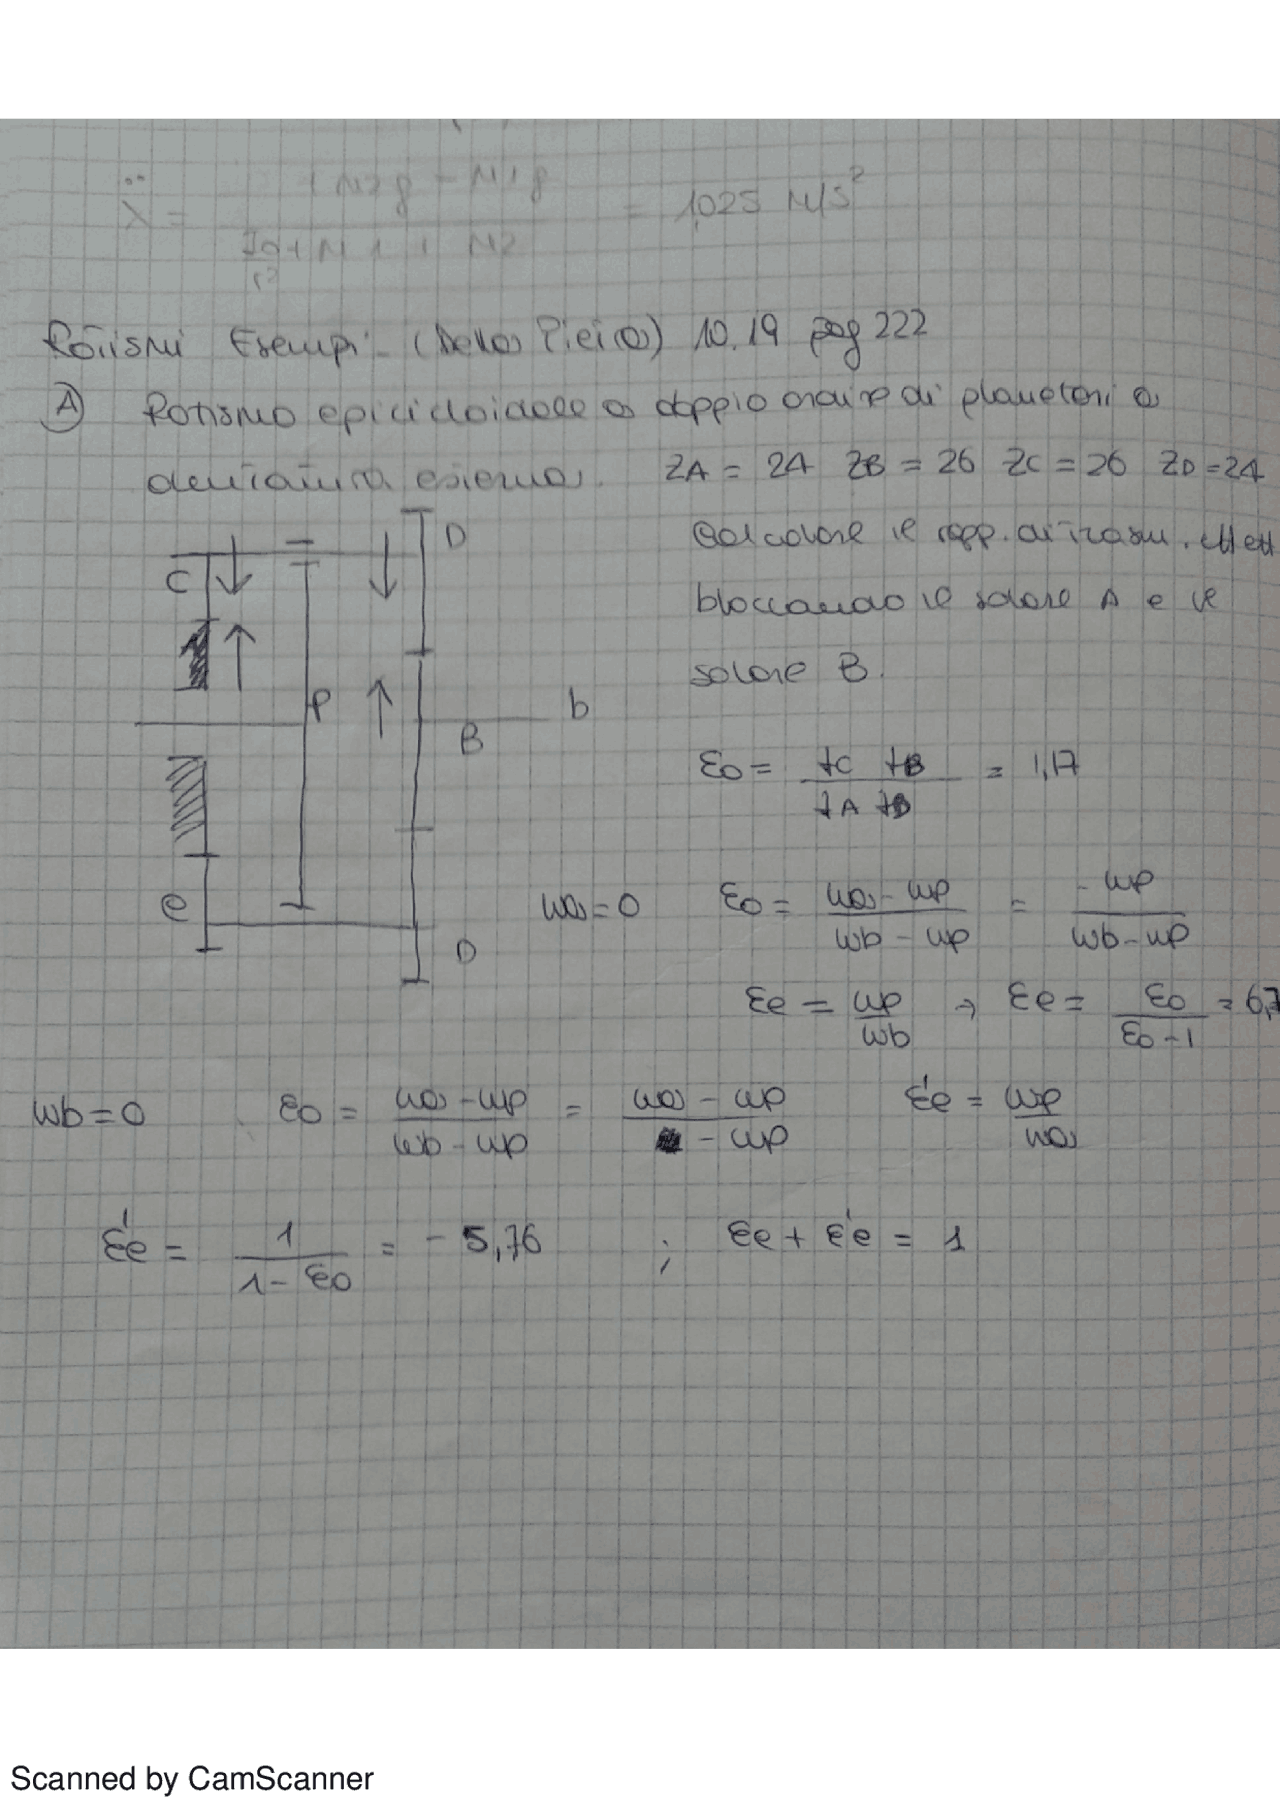 ẍ = + M2g - M1g = 1,025 M/s²
M1 + M2
Rotismi Esempi (Della Pietra) 10.19 pag 222
A Rotismo epicicloidale a doppio ordine di planetari a
dentatura esterna. ZA = 24 ZB = 26 ZC = 26 ZD = 24
Calcolare il rapp. di trasm. eff ett
bloccando il solare A e il
solare B.
D
C
P
b
B
e
D
ε0 = zC zB / zA zD = 1,17
wa = 0 ε0 = wa - wp / wb - wp = - wp / wb - wp
εe = wp / wb → εe = ε0 / ε0 - 1 = 6,7
wb = 0 ε0 = wa - wp / wb - wp = wa - wp / - wp ε'e = wp / wa
ε'e = 1 / 1 - ε0 = - 5,76 ; εe + ε'e = 1
Scanned by CamScanner